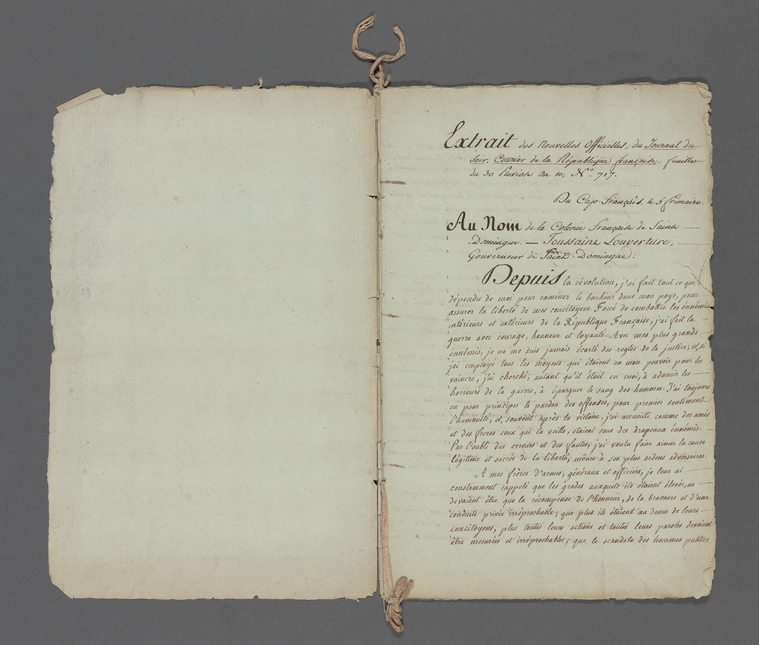 Extrait des Nouvelles Officielles, du Journal du
Soir, Courier de la République française, feuille
du 30 Pluviose an 10, Nº. 717.
Du Cap-français, le 5 frimaire.
Au Nom de la Colonie Française de Saint
Domingue. — Toussaint Louverture,
Gouverneur de Saint-Domingue.
Depuis la révolution, j'ai fait tout ce qui
dépendu de moi pour ramener le bonheur dans mon pays, pour
assurer la liberté de mes concitoyens. Forcé de combattre les ennémis
intérieurs et extérieurs de la République Française, j'ai fait la
guerre avec courage, honneur et loyauté. Avec mes plus grands
ennémis, je ne me suis jamais écarté des regles de la justice; et, si
j'ai employé tous les moyens qui étaient en mon pouvoir pour les
vaincre, j'ai cherché, autant qu'il était en moi, à adoucir les
horreurs de la guerre, à épargner le sang des hommes. J'ai toujours
eu pour principes le pardon des offenses, pour premier sentiment
l'humanité; et, souvent après la victoire, j'ai accueilli comme des amis
et des freres ceux qui la veille, étaient sous des drapeaux énnemis.
Par l'oubli des erreurs et des fautes, j'ai voulu faire aimer la cause
légitime et sacrée de la liberté, même à ses plus ardens adversaires.
A mes frères d'armes, généraux et officiers, je leur ai
constamment rappelé que les grades auxquels ils étaient élevés, ne
devaient être que la récompense de l'honneur, de la bravoure et d'une
conduite privée irréprochable; que plus ils étaient au dessus de leurs
concitoyens, plus toutes leurs actions et toutes leurs paroles devaient
être mesurées et irréprochables; que le scandale des hommes publics